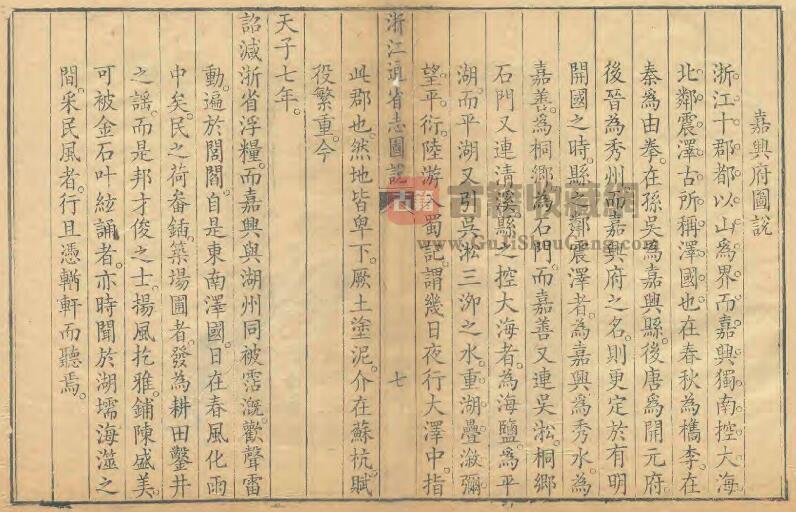 嘉興府圖說
浙江十郡都以山為界而嘉興獨南控大海
北鄰震澤古所稱澤國也在春秋為檇李在
秦為由拳在孫吳為嘉興縣後唐為開元府
後晉為秀州而嘉興府之名則更定於有明
開國之時縣之鄰震澤者為嘉興為秀水為
嘉善為桐鄉為石門而嘉善又連吳淞桐鄉
石門又連清溪縣之控大海者為海鹽為平
湖而平湖又引吳淞三泖之水重湖疊漵彌
望平衍陸游入蜀記謂幾日夜行大澤中指
浙江通省志圖說 七
此郡也然地皆卑下厥土塗泥介在蘇杭賦
役繁重今
天子七年
詔減浙省浮糧而嘉興與湖州同被霑溉歡聲雷
動遍於閭閻自是東南澤國日在春風化雨
中矣民之荷畚鍤築場圃者發為耕田鑿井
之謠而是邦才俊之士揚風扢雅鋪陳盛美
可被金石叶絃誦者亦時聞於湖壖海澨之
間采民風者行且憑輶軒而聽焉
古籍收藏網
www.GuJiShouCang.com